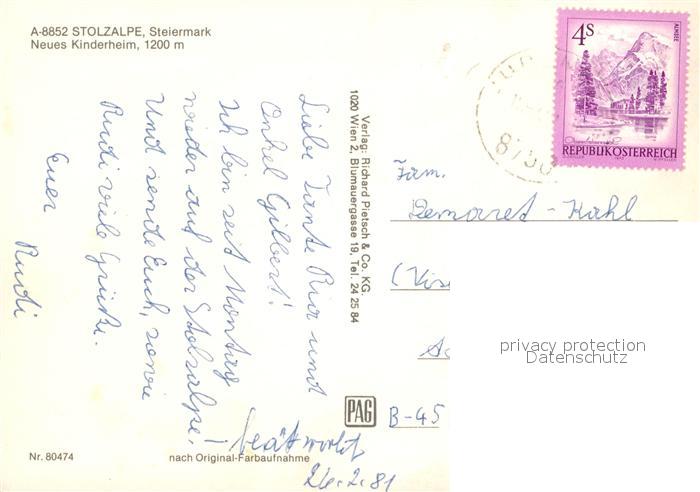 A-8852 STOLZALPE, Steiermark
Neues Kinderheim, 1200 m
Liebe Tante Ria und
Onkel Gilbert!
Ich bin seit Montag
wieder auf der Stolzalpe!
Und sende Euch, sowie
Rudi viele Grüße.
Euer
Rudi
24.2.81
Nr. 80474
nach Original-Farbaufnahme
Verlag: Richard Pietsch & Co. KG.
1020 Wien 2, Blumauergasse 19, Tel. 24 25 84
PAG
4S
ALMSEE
REPUBLIK ÖSTERREICH
Fam.
Demaret-Kahl
B-45
privacy protection
Datenschutz